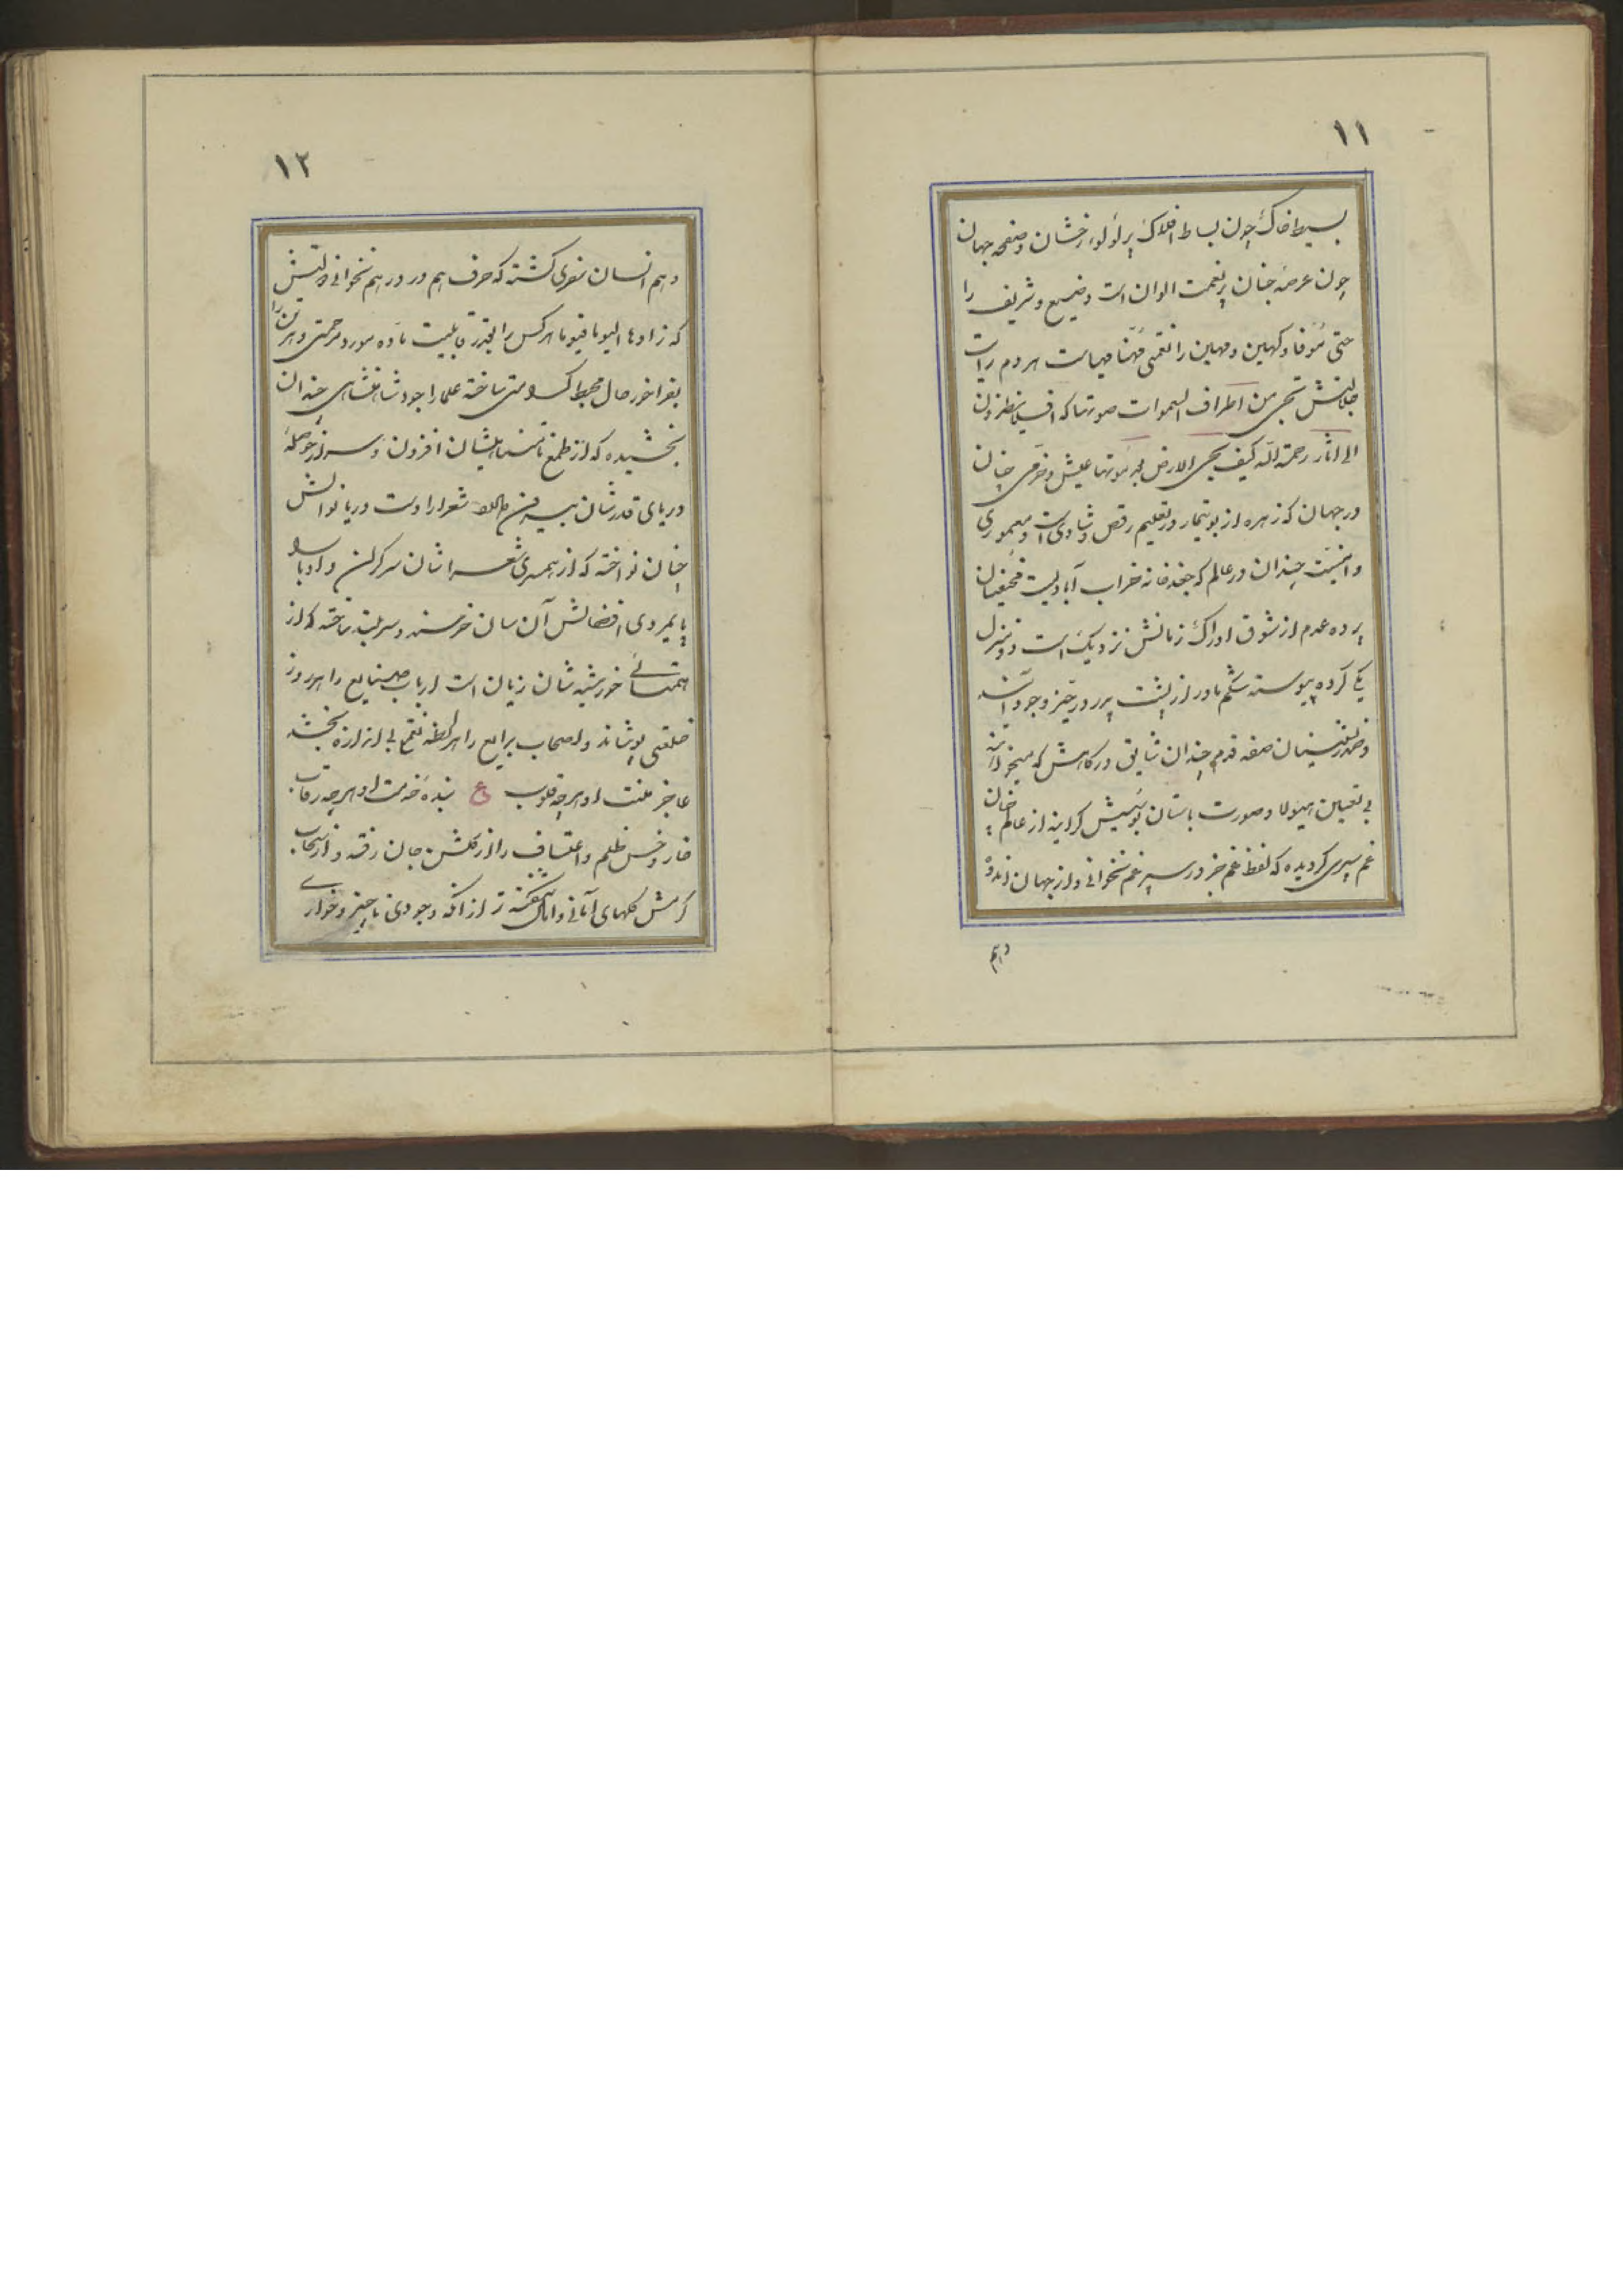 ۱۱
بسیط خاک چون بساط افلاک پر لؤلوء رخشان و صفحه جهان
چون عرصه جنان پر نعمت الوان است وضیع و شریف را
حتی موفا و کهین و مهین را نعمتی مهنا مهیاست هر دم رایات
جلالتش تجری من اطراف السموات صوتها که افلا ینظرون
الی اثار رحمة الله کیف یحیی الارض بعد موتها عیش و خرمی چنان
در جهان که زهره از بوتیمار در تعلیم رقص و شادیست و معموری
و امنیت چندان در عالم که جغد خانه خراب آبادیست مخفیان
پرده عدم از شوق ادراک زمانش نزدیک است دو منزل
یکی کرده پیوسته شکم مادر از پشت پدر در حیز وجود آیند
و صدرنشینان صفه قدم چندان شایق درگاهش که میخواهند
بی تعیین هیولا و صورت باستان بوسیش گرایند از عالم چنان
غم سپری گردیده که لفظ غم جز در سپر غم نخوانی و از جهان اندوه
وهم
۱۲
وهم انسان متعری گشته که حرف هم در درهم نخوانی
که زادها الیوما فیوما هر کس را بقدر قابلیت ماده مورد مرحمتی و هر تن را
بفراخور حال محیط ساخته علما را جود شاهنشاهی چندان
بخشیده که از طمع افزون و از حوصله
دریای قدرشان بیرون شعرا را دست دریا نوالش
چنان نواخته که از همسری شعرا شان سرگران و ادبا را
پایمردی افضالش آن سان خرسند و سربلند ساخته که از
همتائی خورشید شان زیان است ارباب صنایع را هر روز
خلعتی پوشاند و اصحاب بدایع را هر لحظه نعمتی بی اندازه بخشد
عاجز منت او هر چه قلوب ع بنده خدمت او هر چه رقاب
خار و خس ظلم و اعتساف را از گلشن جهان رفته و از سحاب
کرمش گلهای آمانی و امال شگفته تر از انکه وجودی ناچیز و خوار